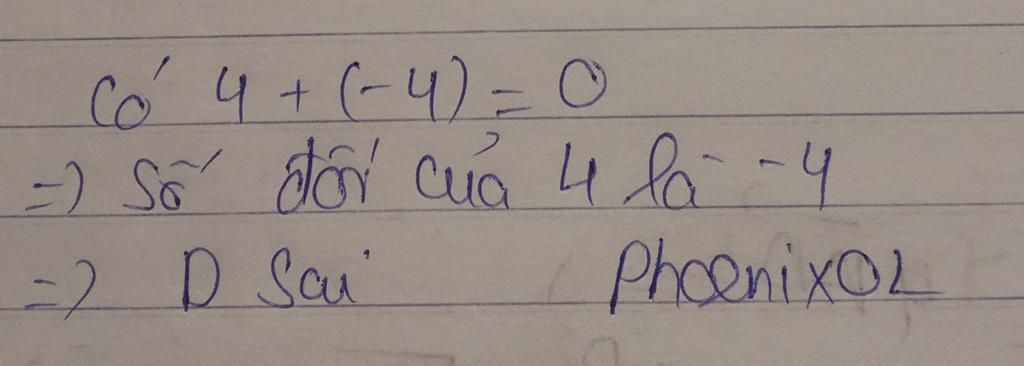 Có 4 + (-4) = 0
=) Số đối của 4 là -4
=) D Sai PhoenixOL